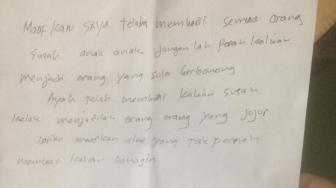 Maafkan saya telah membuat semua orang
susah anak anak janganlah pernah kalian
menjadi orang yang suka berbohong
Ayah telah membuat kalian susah
kelak menjadilah orang orang yang jujur
yang tak pernah
membuat kalian